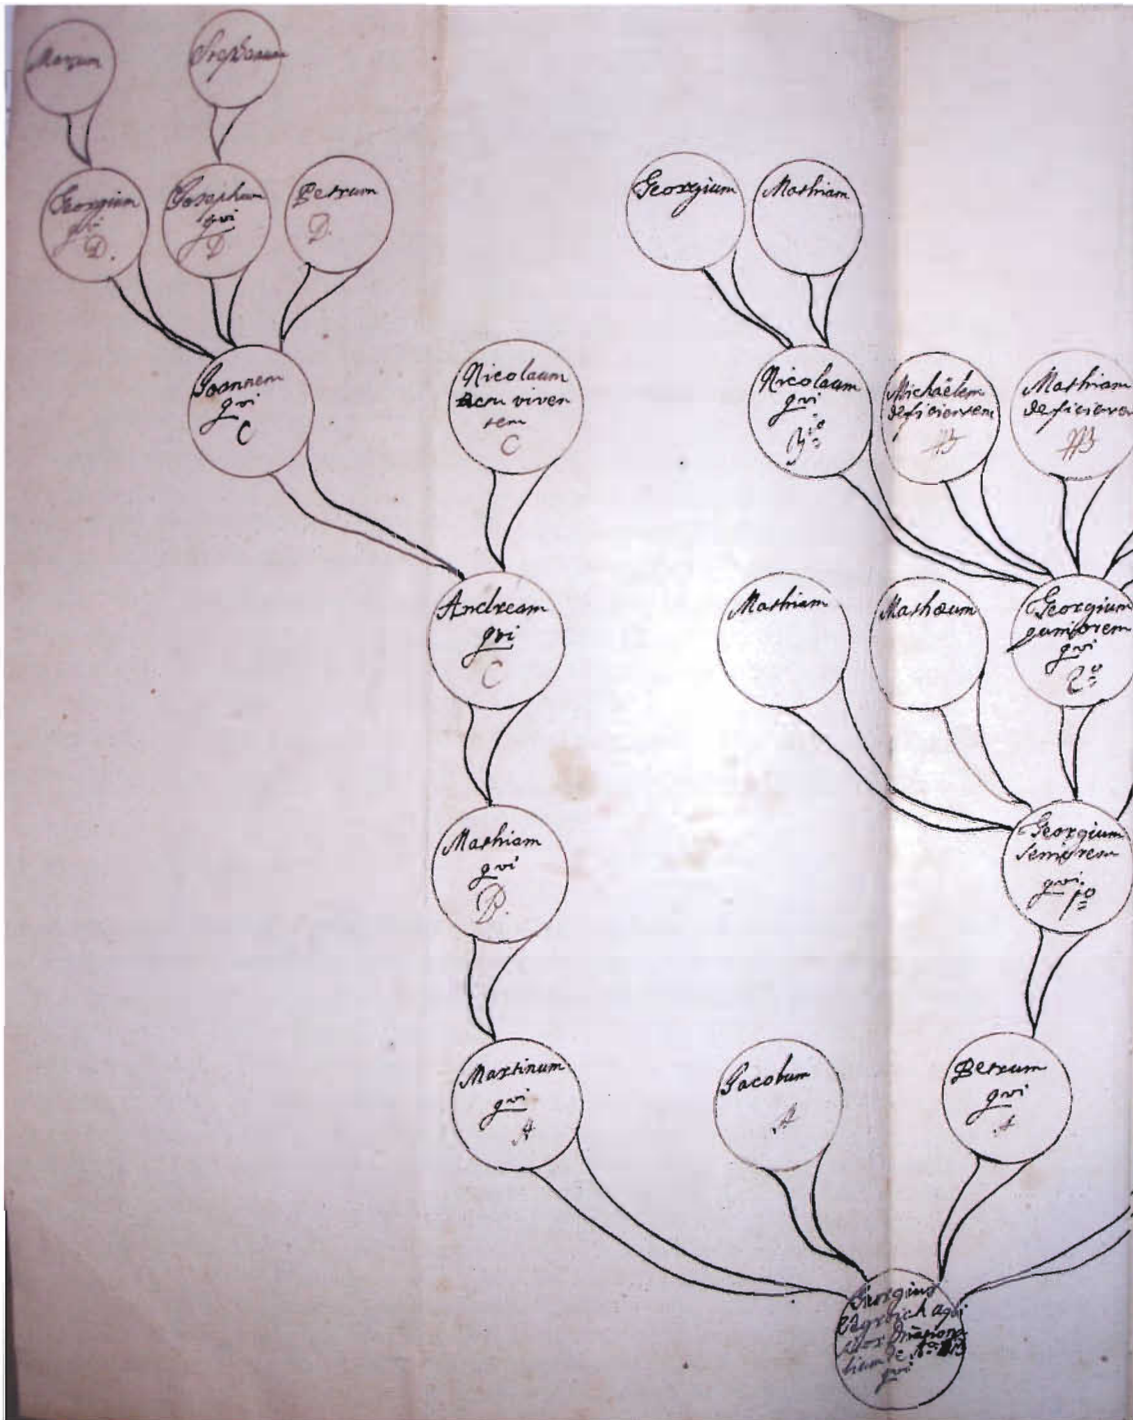 Marxum
Stephanum
Georgium
qvi
D.
Josephum
qvi
D
Petrum
D.
Georgium
Mathiam
Joannem
qvi
C
Nicolaum
acu viven
tem
C
Nicolaum
qvi
3tio
Michaëlem
deficientem
AB
Mathiam
deficiere
AB
Andream
qvi
C
Mathiam
Mathæum
Georgium
juniorem
qvi
2o
Mathiam
qvi
B.
Georgium
seniorem
qvi
1o
Martinum
qvi
A
Jacobum
A
Petrum
qvi
A
Georgius
aqvi
qvi